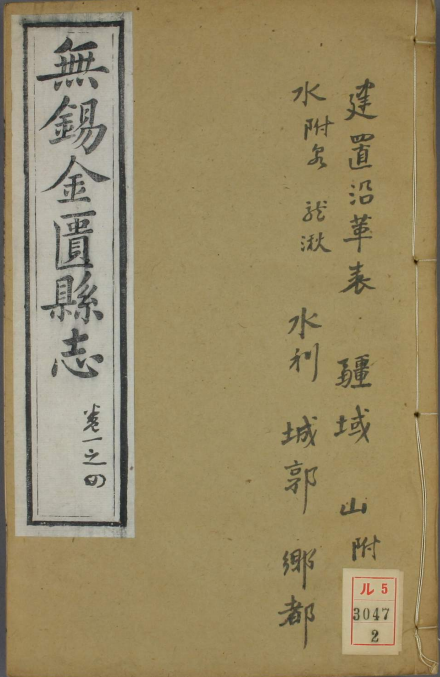 無錫金匱縣志
卷一之四
建置沿革表 疆域 山附
水附 龍湫 水利 城郭 鄉都
ル5
3047
2